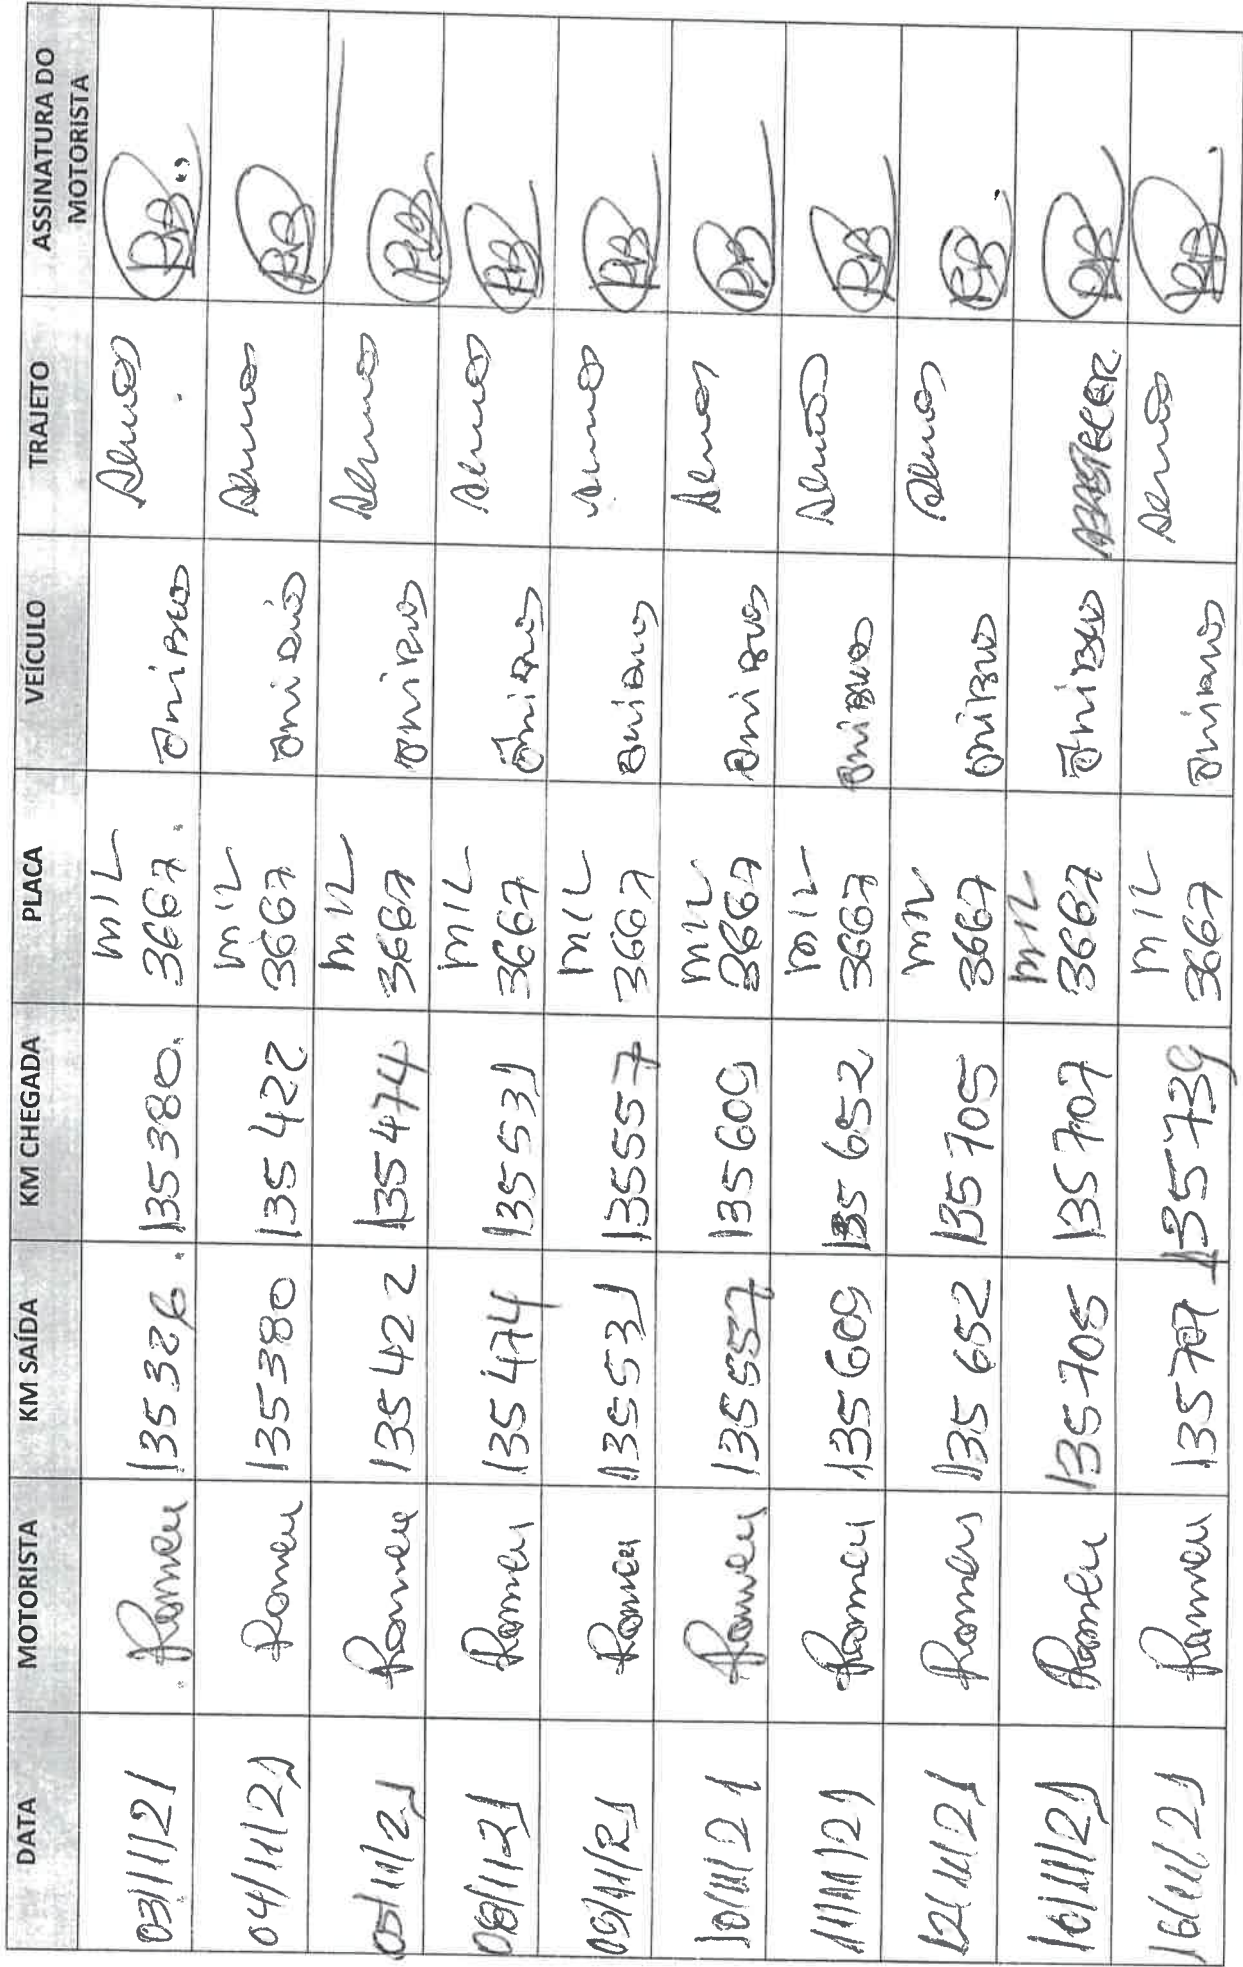 DATA MOTORISTA KM SAÍDA KM CHEGADA PLACA VEÍCULO TRAJETO ASSINATURA DO MOTORISTA
03/11/21 Romeu 135326 135380 MIL 3667 ôniBus Alunos
04/11/21 Romeu 135380 135422 MIL 3667 ôniBus Alunos
05/11/21 Romeu 135422 135474 MIL 3667 ôniBus Alunos
08/11/21 Romeu 135474 135531 MIL 3667 ôniBus Alunos
09/11/21 Romeu 135531 135557 MIL 3667 ôniBus Alunos
10/11/21 Romeu 135557 135609 MIL 3667 ôniBus Alunos
11/11/21 Romeu 135609 135652 MIL 3667 ôniBus Alunos
12/11/21 Romeu 135652 135705 MIL 3667 ôniBus Alunos
16/11/21 Romeu 135705 135707 MIL 3667 ôniBus ABASTECER
16/11/21 Romeu 135707 135739 MIL 3667 ôniBus Alunos